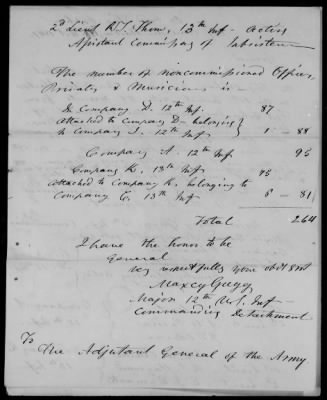 2d Lieut R. T. Thom, 13th Inf - Acting
Assistant Commissary of Subsistence
The number of noncommissioned Officers,
Privates & Musicians is -
In Company D. 12th Inf. 87
Attached to Company D- belonging
to Company I. 12th Inf 1 - 88
Company A. 12th Inf. 95
Company K. 13th Inf 75
Attached to Company K. belonging to
Company C. 13th Inf 6 - 81
Total 264
I have the honor to be
General
Very respectfully your obdt Svt
Maxcy Gregg
Major 12th U.S. Inf
Commanding Detachment
To
The Adjutant General of the Army